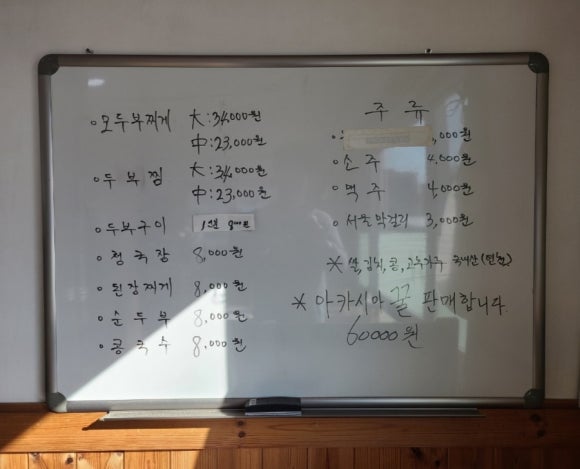 ○ 모두부찌게 大:34,000원
中:23,000원
○ 두부찜 大:34,000원
中:23,000원
○ 두부구이 1인분 8000원
○ 청국장 8,000원
○ 된장찌게 8,000원
○ 순두부 8,000원
○ 콩국수 8,000원
주류
,000원
○ 소주 4,000원
○ 맥주 4,000원
○ 서울막걸리 3,000원
* 쌀,김치,콩,고추가루 국내산(연천)
* 아카시아 꿀 판매합니다.
60000원